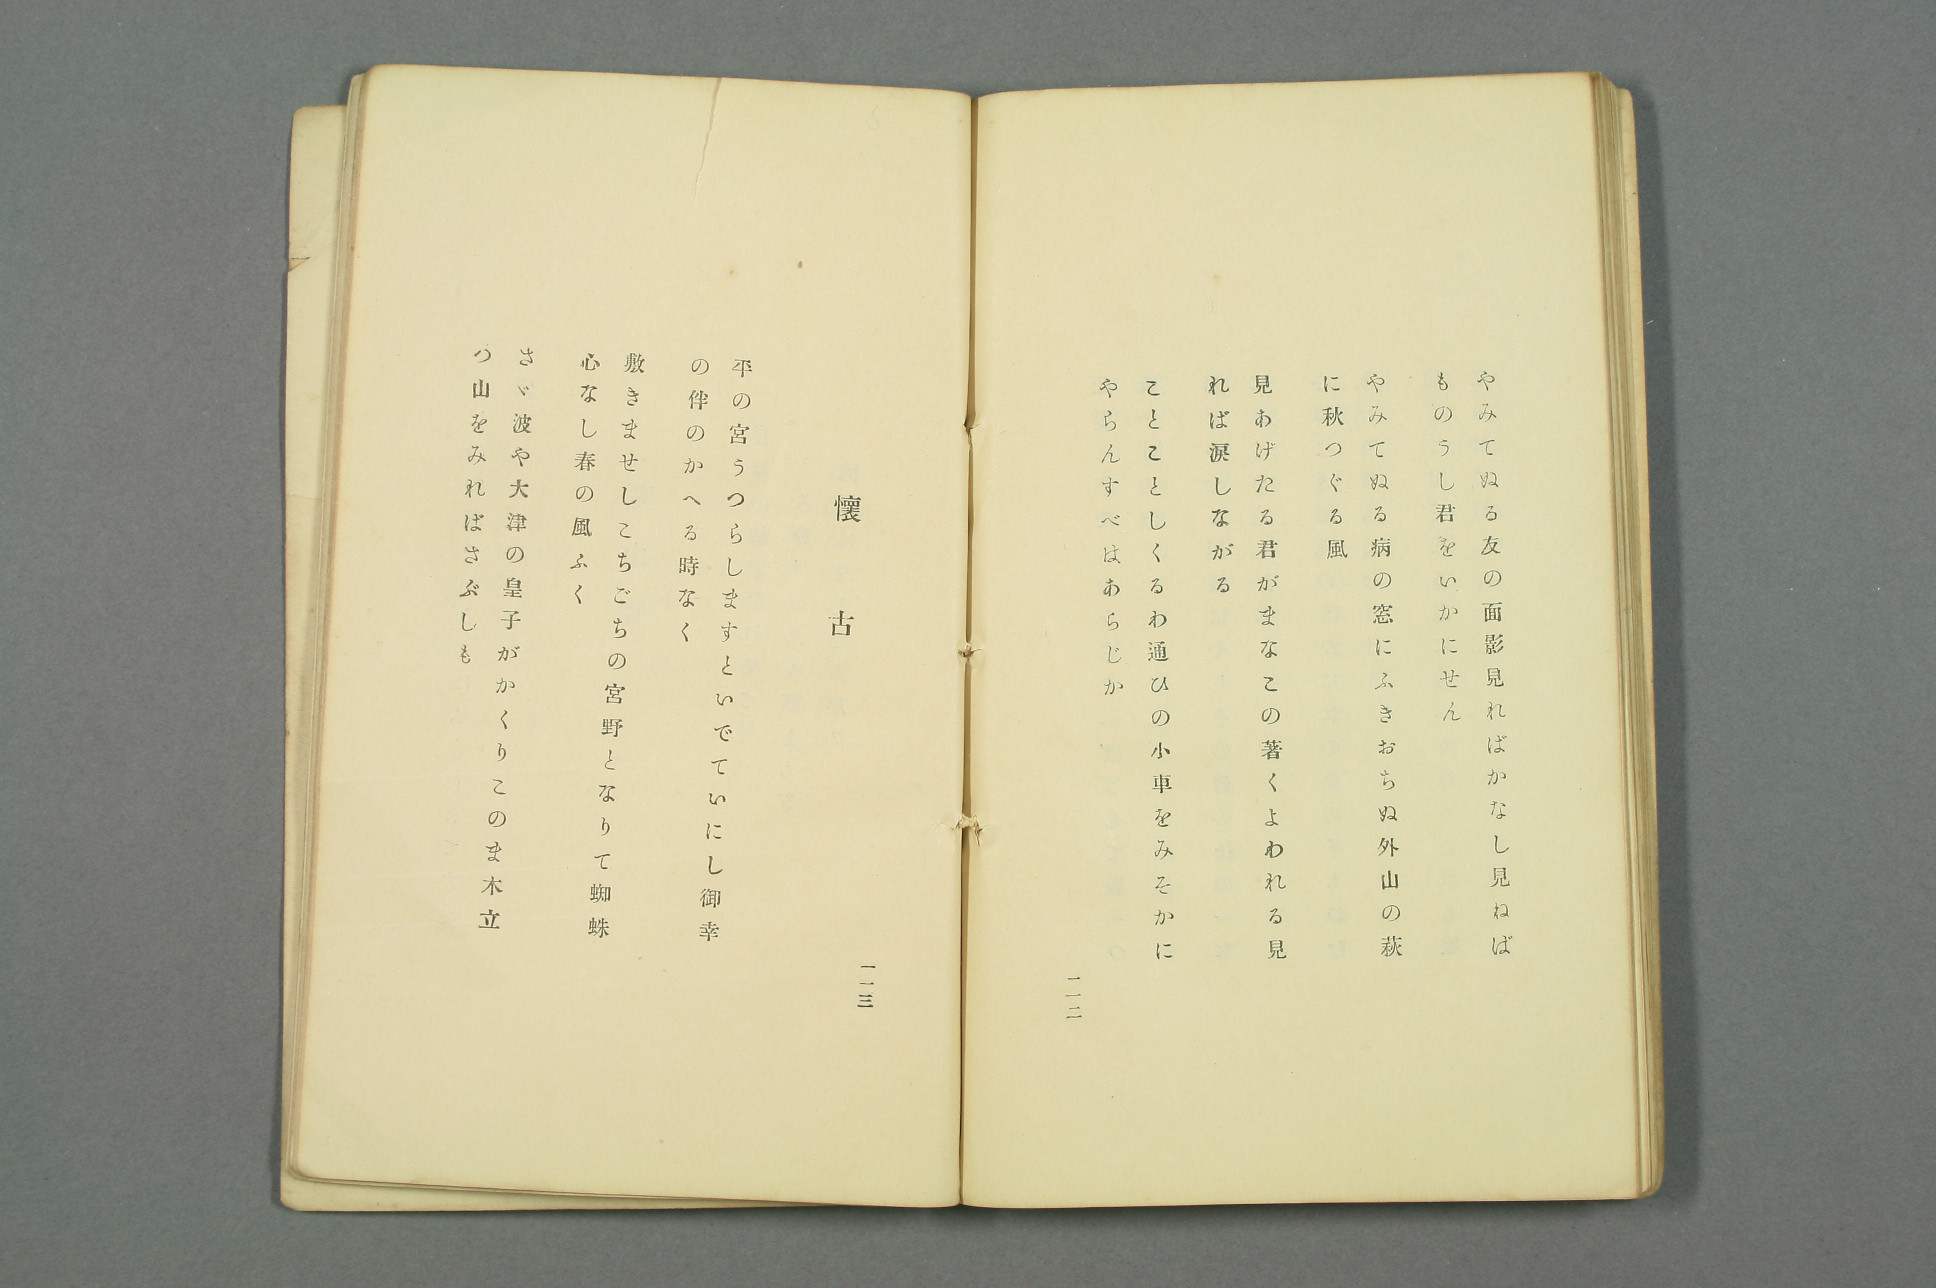 やみてぬる友の面影見ればかなし見ねば
ものうし君をいかにせん
やみてぬる病の窓にふきおちぬ外山の萩
に秋つぐる風
見あげたる君がまなこの著くよわれる見
れば涙しながる
ことことしくるわ通ひの小車をみそかに
やらんすべはあらじか
一一二
懐古
平の宮うつらしますといでていにし御幸
の伴のかへる時なく
敷きませしこちごちの宮野となりて蜘蛛
心なし春の風ふく
さゞ波や大津の皇子がかくりこのま木立
つ山をみればさぶしも
一一三